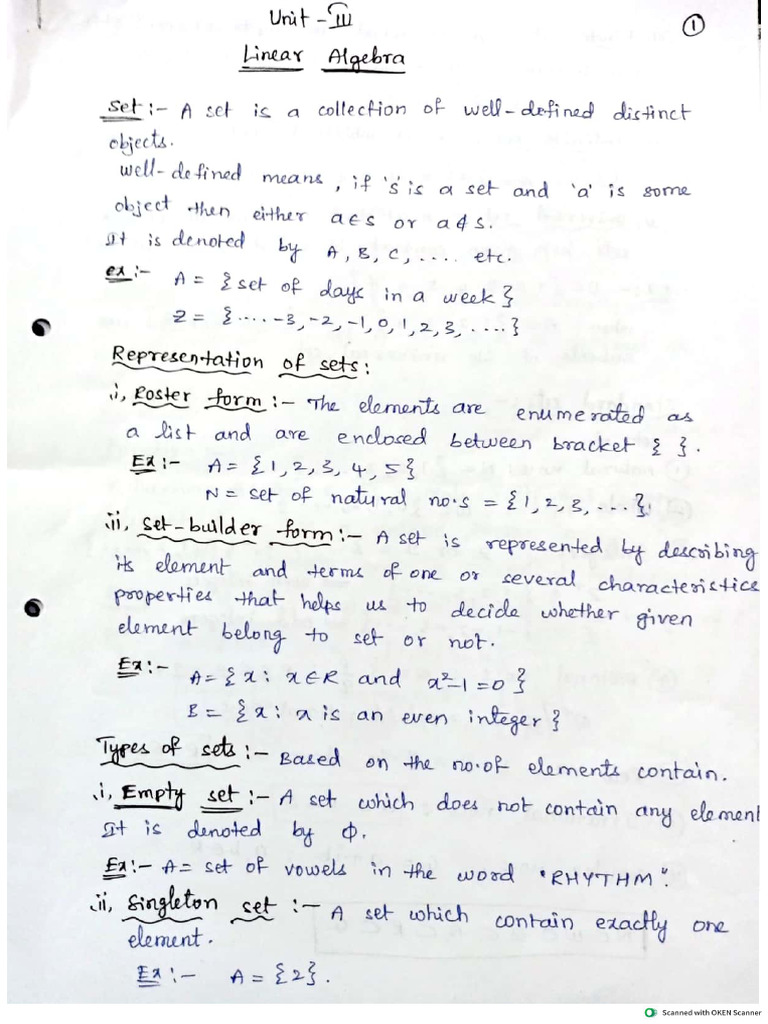 Unit - III
①
Linear Algebra
Set :- A set is a collection of well-defined distinct
objects.
Well-defined means, if 's' is a set and 'a' is some
object then either a∈s or a∉s.
It is denoted by A, B, C, .... etc.
ex :- A = {set of days in a week}
Z = {.... -3, -2, -1, 0, 1, 2, 3, ....}
Representation of sets :
i, Roster form :- The elements are enumerated as
a list and are enclosed between bracket { }.
Ex :- A = {1, 2, 3, 4, 5}
N = set of natural no.s = {1, 2, 3, ...}
ii, Set-builder form :- A set is represented by describing
its element and terms of one or several characteristics
properties that helps us to decide whether given
element belong to set or not.
Ex :- A = {x : x∈R and x²-1=0}
B = {x : x is an even integer}
Types of sets :- Based on the no.of elements contain.
i, Empty set :- A set which does not contain any element
It is denoted by Φ.
Ex :- A = set of vowels in the word "RHYTHM".
ii, Singleton set :- A set which contain exactly one
element.
Ex :- A = {2}.
Scanned with OKEN Scanner